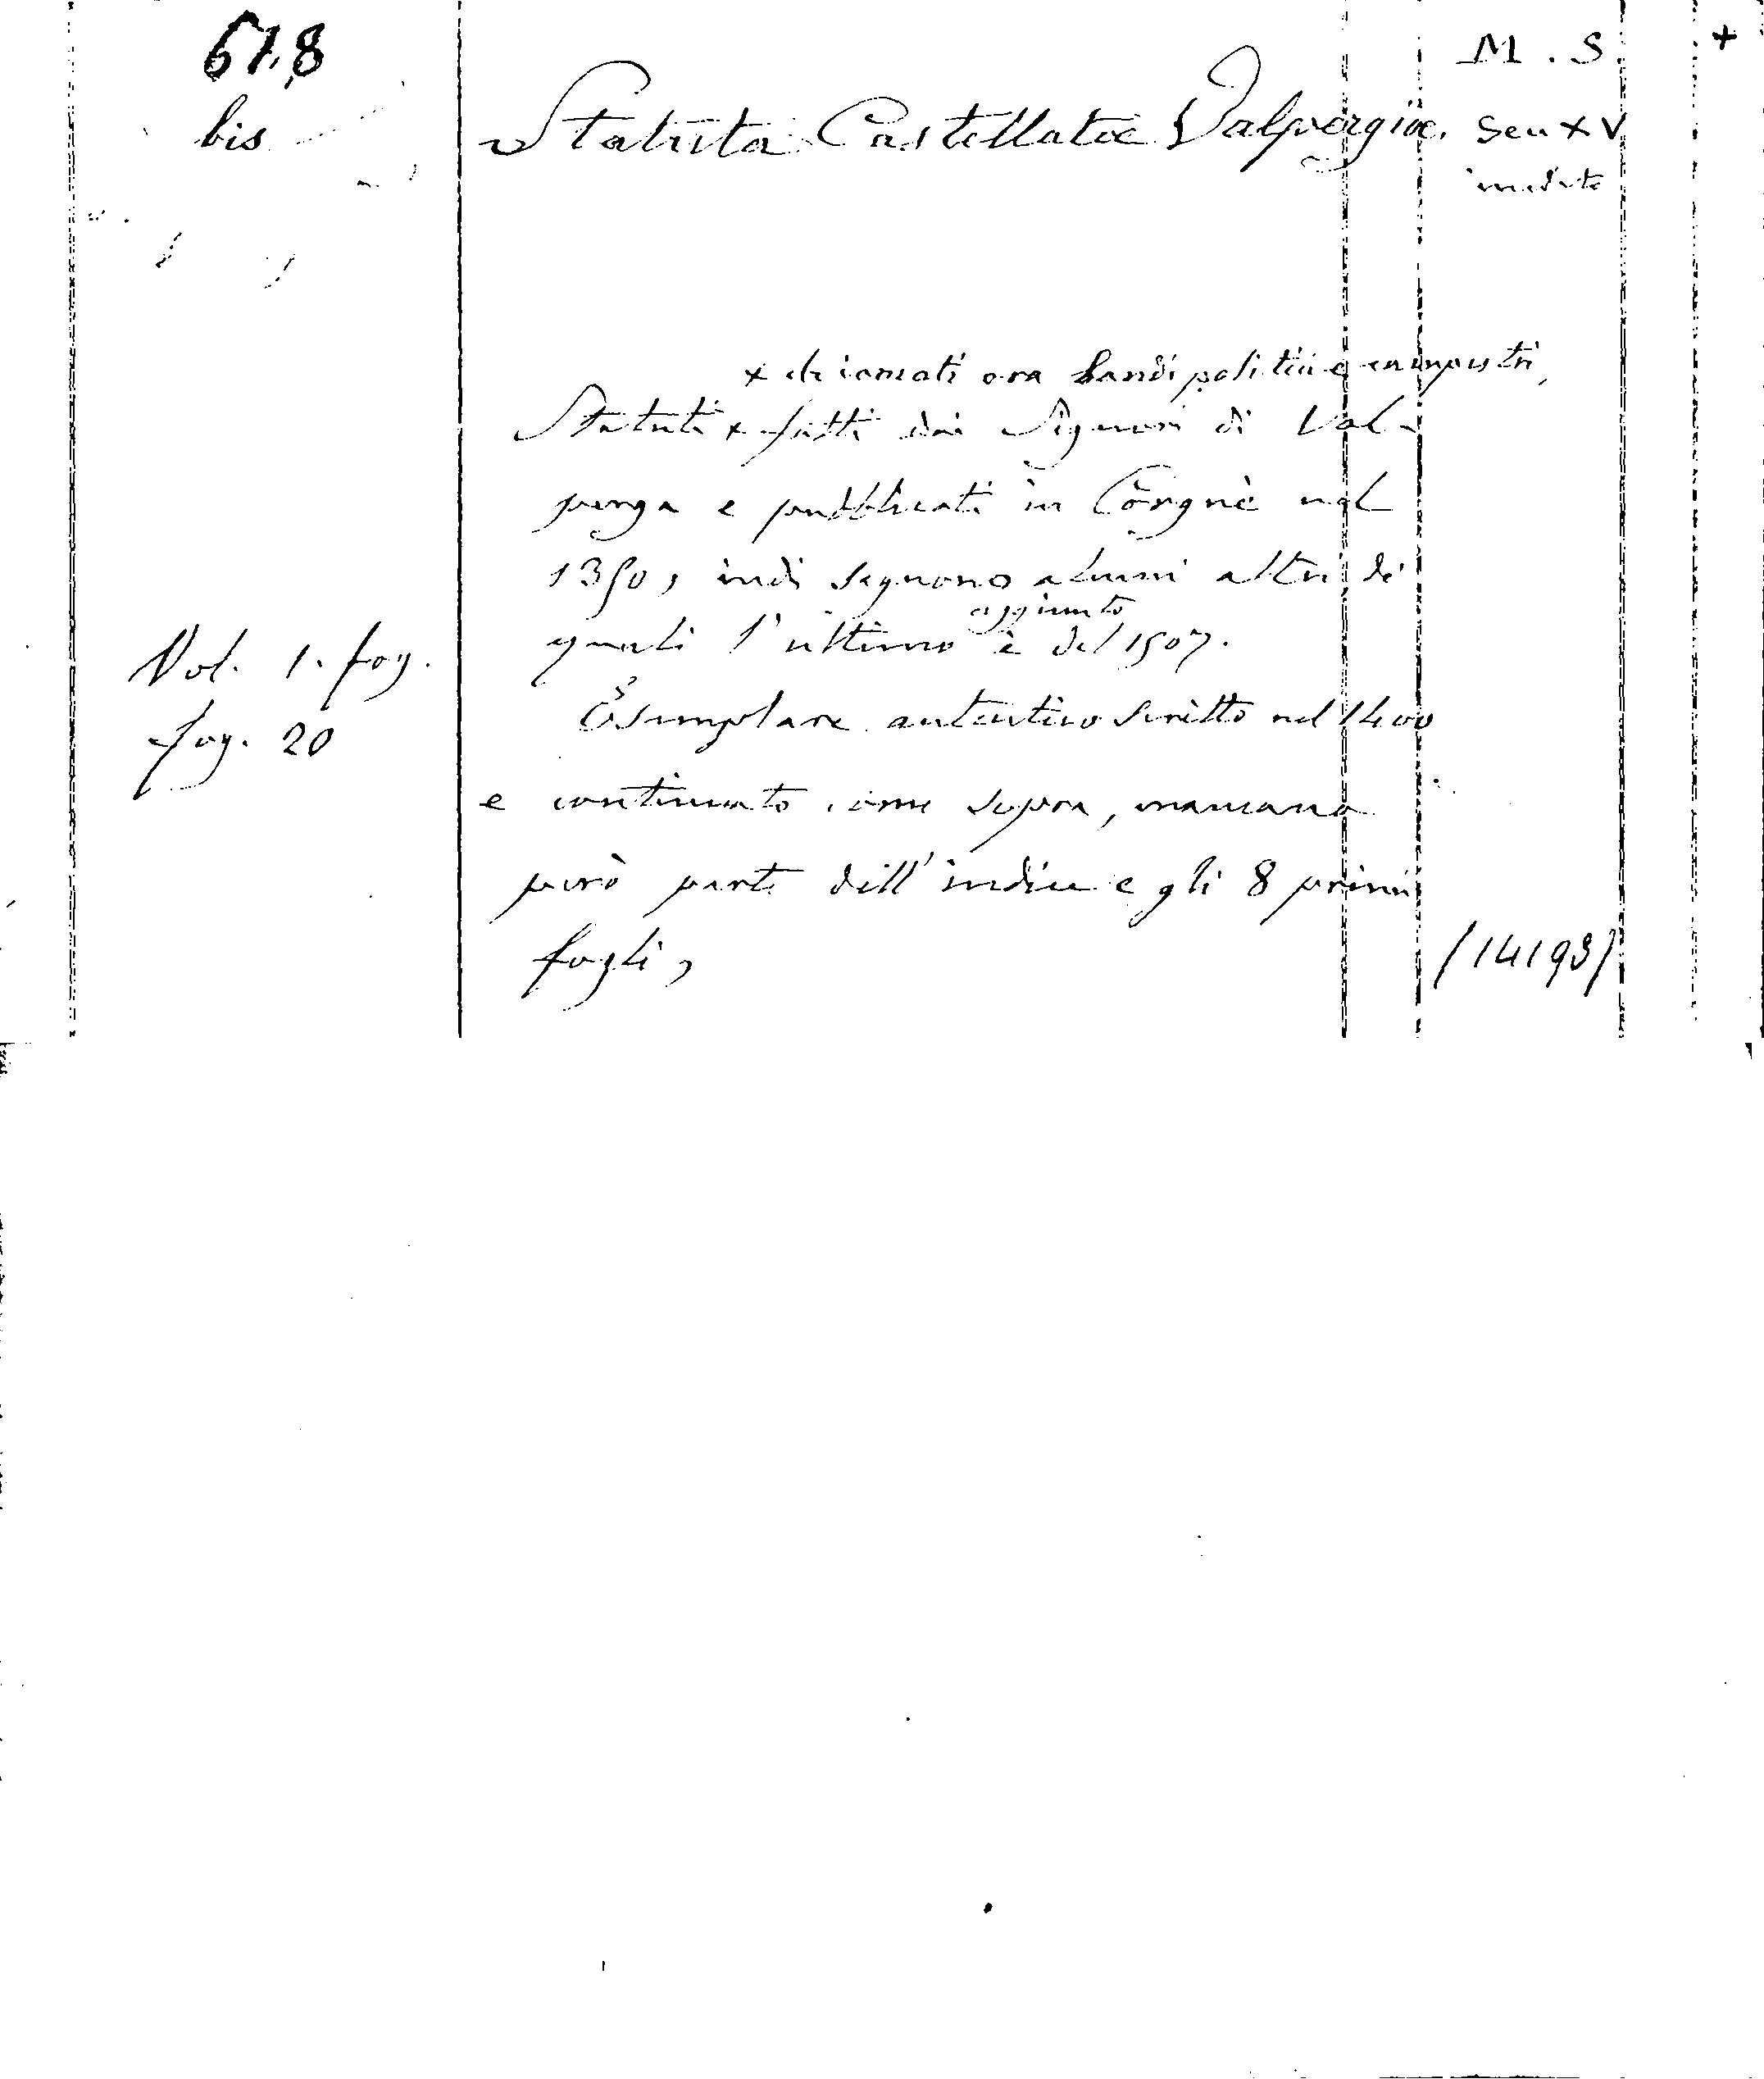 618 M. S. +
bis Statuta Castellatae Valpergiae. Sec XV
inedito
x chiamati ora bandi politici e campestri,
Statuti x fatti dai Signori di Val-
perga e pubblicati in Corgnè nel
1350, indi seguono alcuni altri, dei
aggiunto
quali l'ultimo è del 1507.
Vol. 1. fog.
Esemplare autentico scritto nel 1400
fog. 20
e continuato come sopra, mancano
però parte dell'indice e gli 8 primi
fogli,
(14193)